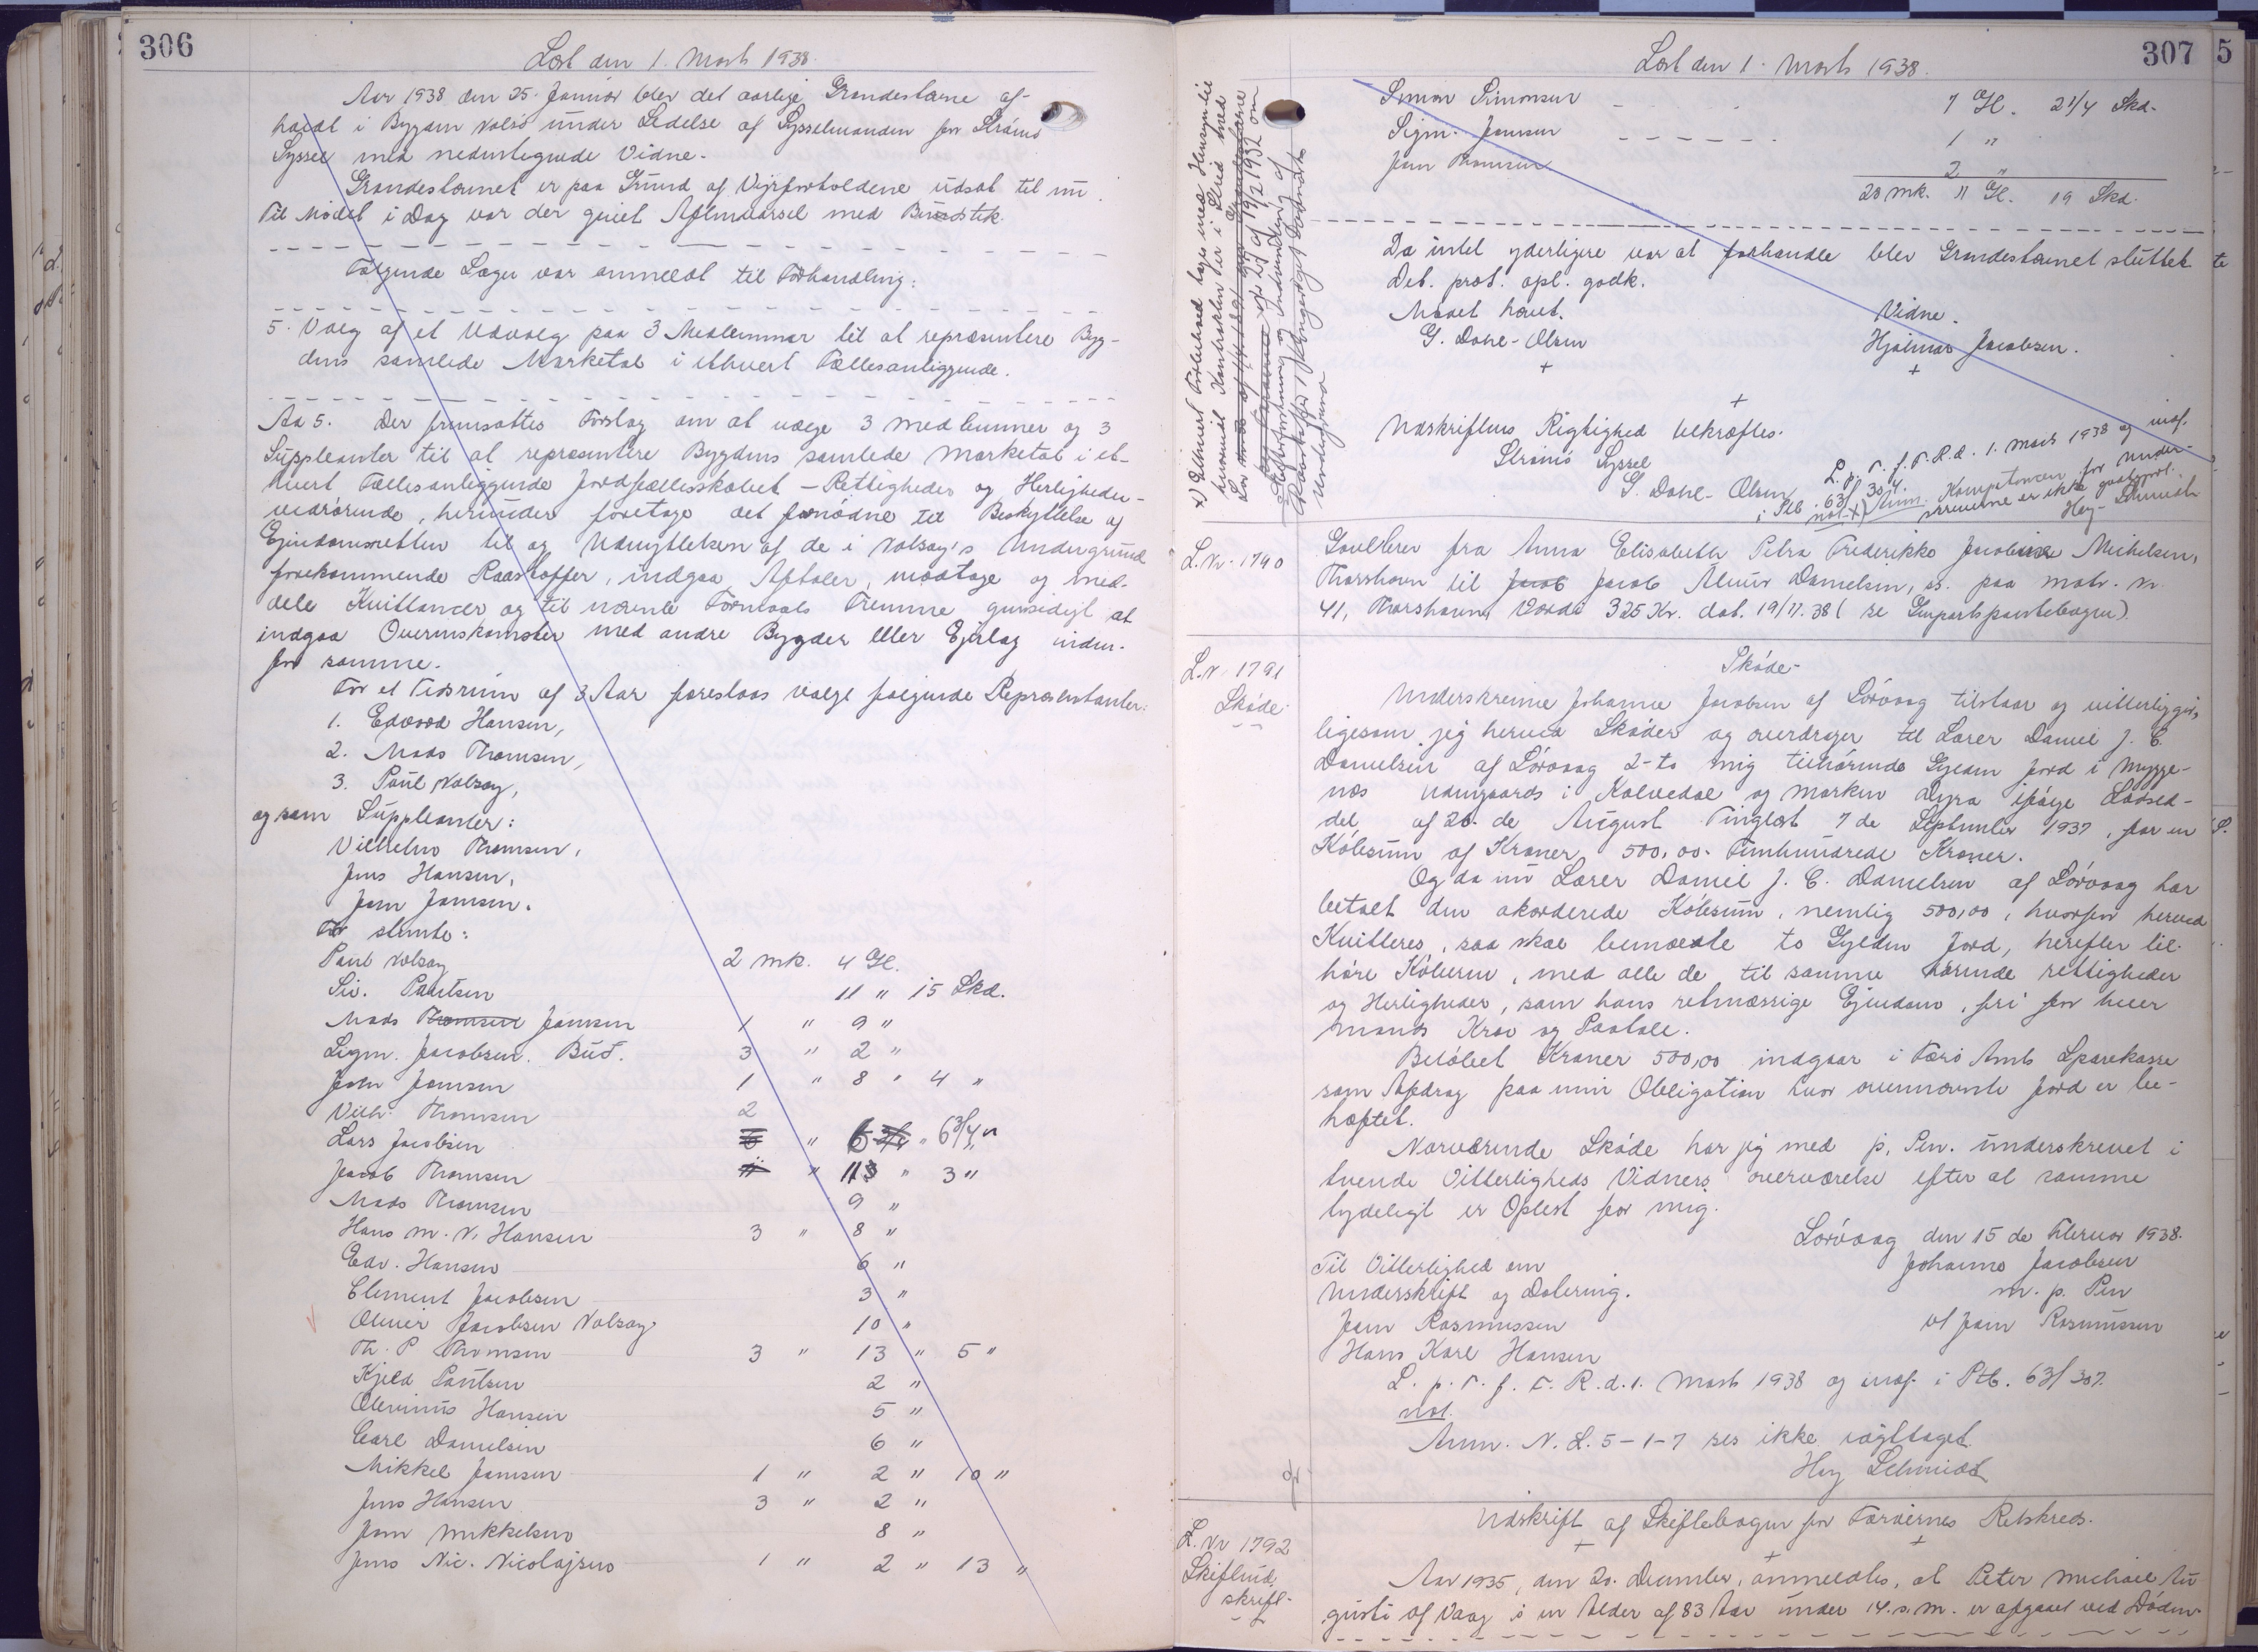 306
Læst den 1. Marts 1938.
Aar 1938 den 25. Januar blev det aarlige Grandestævne af-
holdt i Bygden Nolsö under Ledelse af Sysselmanden for Strömö
Syssel med nedentegnede Vidne.
Grandestævnet er paa Grund af Vejrforholdene udsat til nu.
Til Mødet i Dag var der givet Aftenvarsel med Budstik.
Følgende Sager var anmeldt til Forhandling:
5. Valg af et Udvalg paa 3 Medlemmer til at repræsentere Byg-
dens samlede Marketal i ethvert Fællesanliggende.
Ad 5. Der fremsattes Forslag om at vælge 3 medlemmer og 3
Suppleanter til at repræsentere Bygdens samlede Marketal i et-
hvert Fællesanliggende Jordfællesskabet - Rettigheder og Herligheder -
vedrörende, herunder foretage det fornødne til Beskyttelse af
Ejendomsretten til og Udnyttelsen af de i Nolsoy's Undergrund
forekommende Raastoffer, indgaa Aftaler, modtage og med-
dele Kvittancer og til nævnte Formaals Fremme gensidigt at
indgaa Overenskomster med andre Bygder eller Ejerlag inden-
for samme.
For et Tidsrum af 3 Aar foreslaas valgt følgende Repræsentanter:
1. Edvard Hansen,
2. Mads Thomsen,
3. Paul Nolsøy,
og som Suppleanter:
Vilhelm Thomsen,
Jens Hansen,
Joen Joensen.
For stemte:
Paul Nolsøy 2 mk. 4 Gl.
Siv. Poulsen 11 " 15 Skd.
Mads Thomsen Joensen 1 " 9 "
Sigm. Jacobsen. Bud. 3 " 2 "
John Joensen 1 " 8 " 4 "
Vilh. Thomsen 2
Lars Jacobsen " 6 " 6 3/4 "
Jacob Thomsen " 11 " 3 "
Mads Thomsen 9 "
Hans M. N. Hansen 3 " 8 "
Edv. Hansen 6 "
Clement Jacobsen 3 "
Oliver Jacobsen Nolsøy 10 "
Th. P. Thomsen 3 " 13 " 5 "
Kjeld Poulsen 2 "
Olevinus Hansen 5 "
Carl Danielsen 6 "
Mikkel Joensen 1 " 2 " 10 "
Jens Hansen 3 " 2 "
Joen Mikkelsen 8 "
Jens Nic. Nicolajsen 1 " 2 " 13 "
307
Læst den 1. Marts 1938.
Simon Simonsen 7 Gl. 2 1/4 Skd.
Sigm. Joensen 1 "
Joen Thomsen 2 "
28 mk. 11 Gl. 19 Skd.
Da intet yderligere var at forhandle blev Grandestævnet sluttet
Det. prot. opl. godk.
Mødet hævet.
Vidne.
G. Dahl-Olsen
Hjalmar Jacobsen.
Udskriftens Rigtighed bekræftes.
Strömö Syssel
G. Dahl-Olsen
L. p. r. f. F. R. d. 1. Marts 1938 og indf.
i Ptb. 63/304.
not. x) Anm. Kompetencen for Under-
skriverne er ikke godtgjort.
Høy-Schmidt
L. Nr. 1790
Gavebrev fra Anna Elisabeth Petra Frederikke Jacobine Michelsen,
Thorshavn til Jacob Jacob Danielsen, as. paa matr. nr.
41, Thorshavn, Værdi 325 Kr. dat. 19/11.38 (se Genpartspantebogen)
L. Nr. 1791
Skøde.
Skøde.
Underskrevne Johanne Jacobsen af Sörvaag tilstaar og vitterliggör,
ligesom jeg herved Skøder og overdrager til Lærer Daniel J. C.
Danielsen af Sörvaag 2-to mig tilhörende Gylden Jord i Mygge-
næs udengaards i Kalvedal og marken Dyra ifölge Lodsed-
del af 26. de August Tinglæst 7 de September 1937, for en
Købesum af Kroner 500,00. Femhundrede Kroner.
Og da nu Lærer Daniel J. C. Danielsen af Sörvaag har
betalt den akorderede Købesum, nemlig 500,00, hvorfor herved
Kvitteres, saa skal bemeldte to Gylden Jord, herefter til-
høre Køberen, med alle de til samme hørende rettigheder
og Herligheder, som hans retmæssige Ejendom, fri for hver
mands Krav og Paatale.
Beløbet Kroner 500,00 indgaar i Færø Amts Sparekasse
som Afdrag paa min Obligation hvor ovennævnte Jord er be-
hæftet.
Nærværende Skøde har jeg med p. Pen. underskrevet i
tvende Vitterligheds Vidners overværelse efter at samme
tydeligt er Oplæst for mig.
Sörvaag den 15 de Februar 1938.
Til Vitterlighed om
Johanne Jacobsen
Underskrift og Datering.
m. p. Pen
Joen Rasmussen
v/ Joen Rasmussen
Hans Karl Hansen
L. p. r. f. F. R. d. 1. Marts 1938 og indf. i Ptb. 63/307.
not.
Anm. N. L. 5-1-7 ses ikke iagttaget.
Høy Schmidt
L. Nr 1792
Skifteud-
skrift.
Udskrift af Skiftebogen for Færøernes Retskreds.
Aar 1935, den 20. December, anmeldtes, at Peter Michael Au-
gusti af Vaag i en Alder af 83 Aar under 14. s. m. er afgaaet ved Døden.